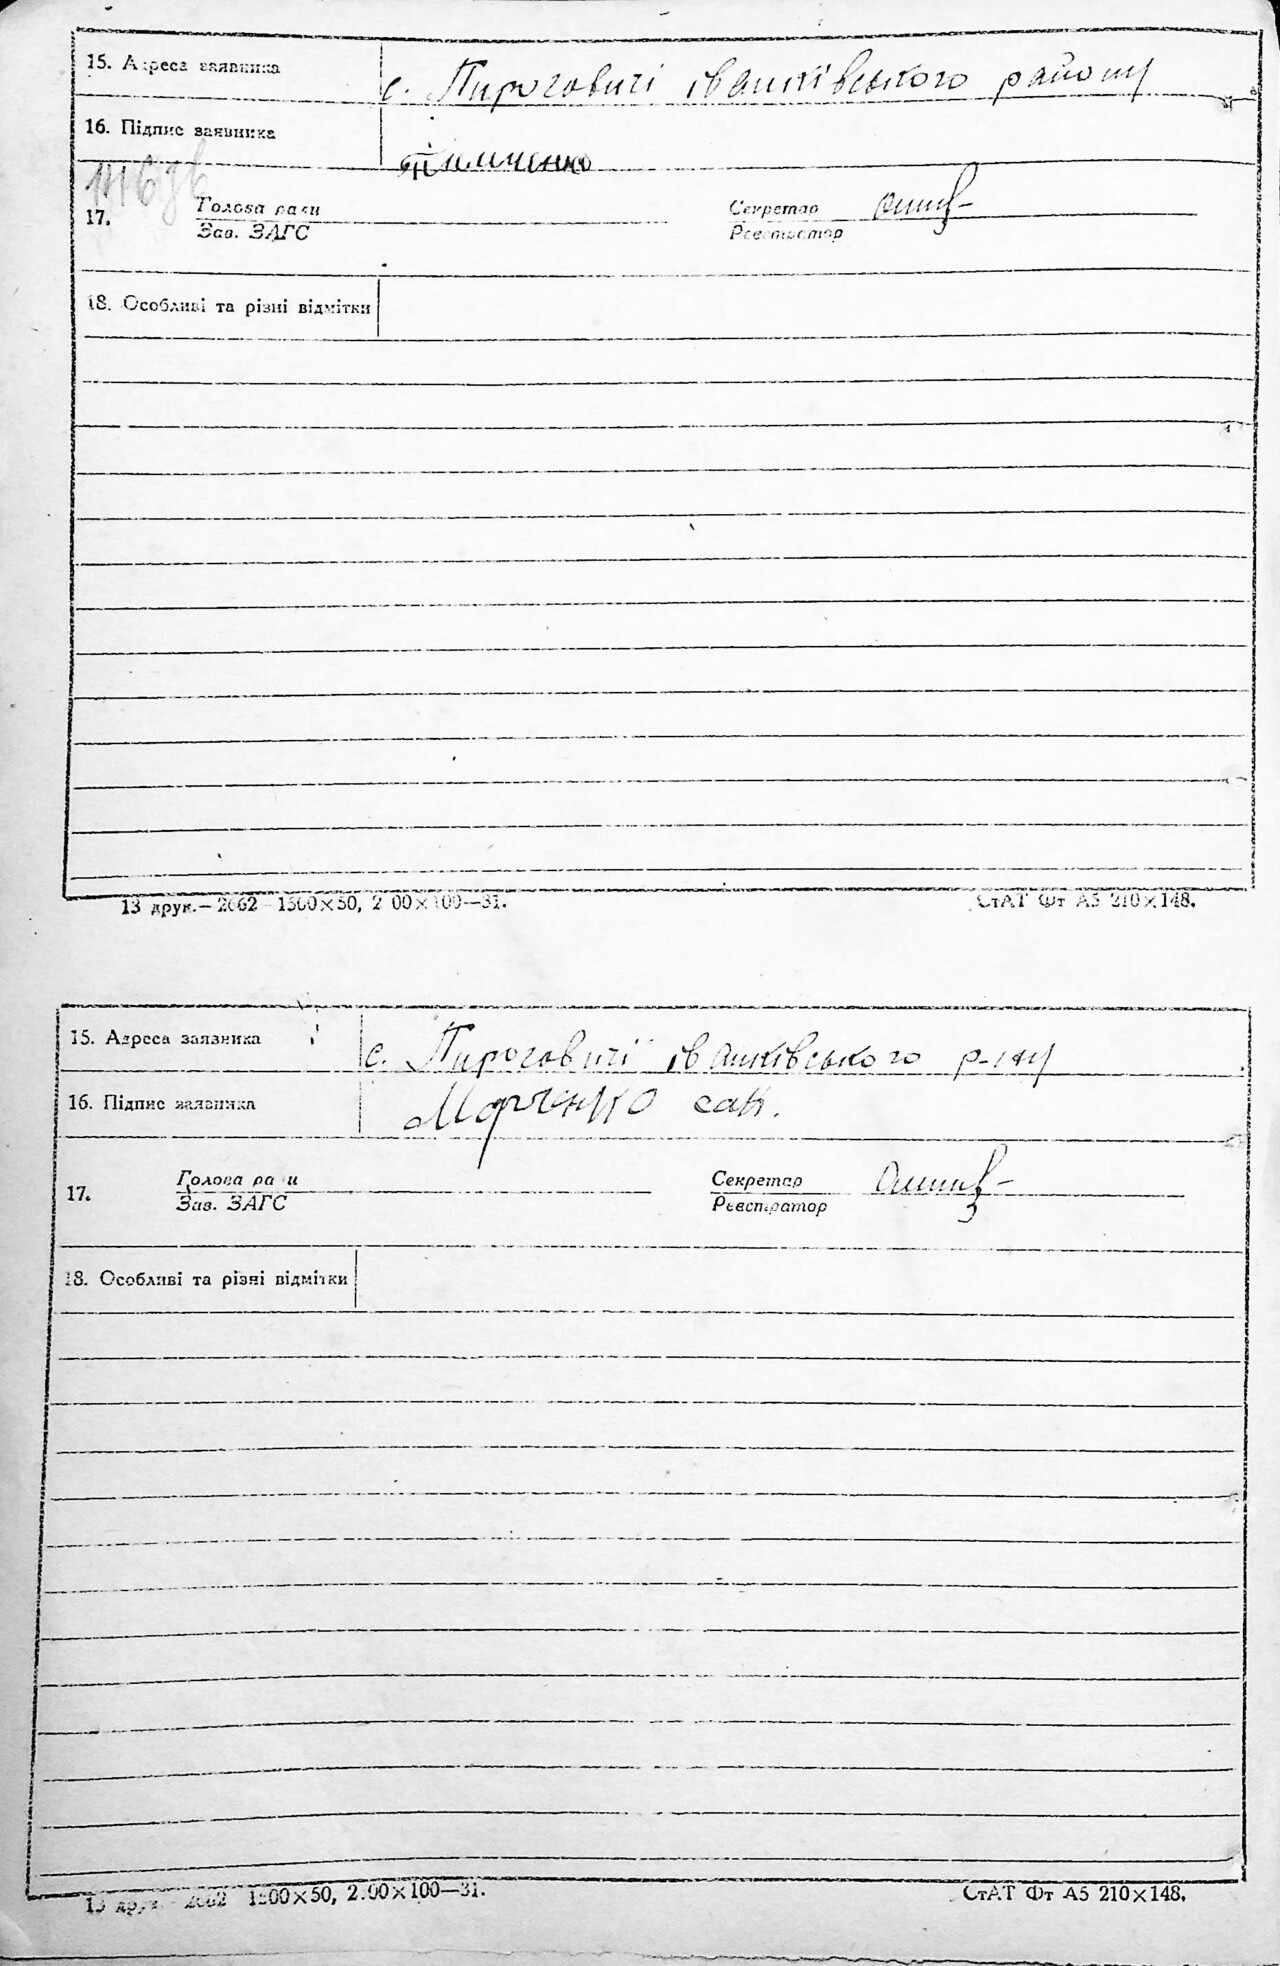 15. Адреса заявника с. Пироговичі іванківського району
16. Підпис заявника Тимченко
17. Голова ради Секретар
Зав. ЗАГС Реєстратор
18. Особливі та різні відмітки
13 друк.— 2662 1500×50, 2 00×100—31. СтАТ Фт А5 210×148.
15. Адреса заявника с. Пироговичі іванківського р-ну
16. Підпис заявника Марченко
17. Голова ради Секретар
Зав. ЗАГС Реєстратор
18. Особливі та різні відмітки
13 друк. 2662 1500×50, 2.00×100—31. СтАТ Фт А5 210×148.